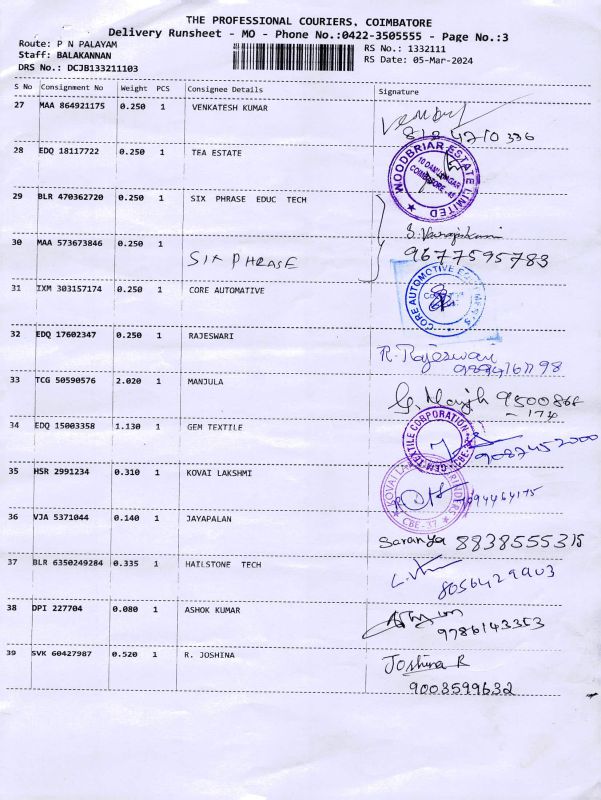 THE PROFESSIONAL COURIERS, COIMBATORE
Delivery Runsheet - MO - Phone No.:0422-3505555 - Page No.:3
Route: P N PALAYAM
Staff: BALAKANNAN
DRS No.: DCJB133211103
RS No.: 1332111
RS Date: 05-Mar-2024
S No Consignment No Weight PCS Consignee Details Signature
27 MAA 864921175 0.250 1 VENKATESH KUMAR
28 EDQ 18117722 0.250 1 TEA ESTATE
WOODBRIAR ESTATE LIMITED
29 BLR 470362720 0.250 1 SIX PHRASE EDUC TECH
30 MAA 573673846 0.250 1
SIX PHRASE 9677595783
31 IXM 303157174 0.250 1 CORE AUTOMATIVE
CORE AUTOMOTIVE
32 EDQ 17602347 0.250 1 RAJESWARI
R. Rajeswari
33 TCG 50590576 2.020 1 MANJULA
34 EDQ 15003358 1.130 1 GEM TEXTILE
GEM TEXTILE CORPORATION
9087452000
35 HSR 2991234 0.310 1 KOVAI LAKSHMI
CBE-37
36 VJA 5371044 0.140 1 JAYAPALAN
Saranya
37 BLR 6350249284 0.335 1 HAILSTONE TECH
38 DPI 227704 0.080 1 ASHOK KUMAR
9786143353
39 SVK 60427987 0.520 1 R. JOSHINA
Joshina R
9003599632